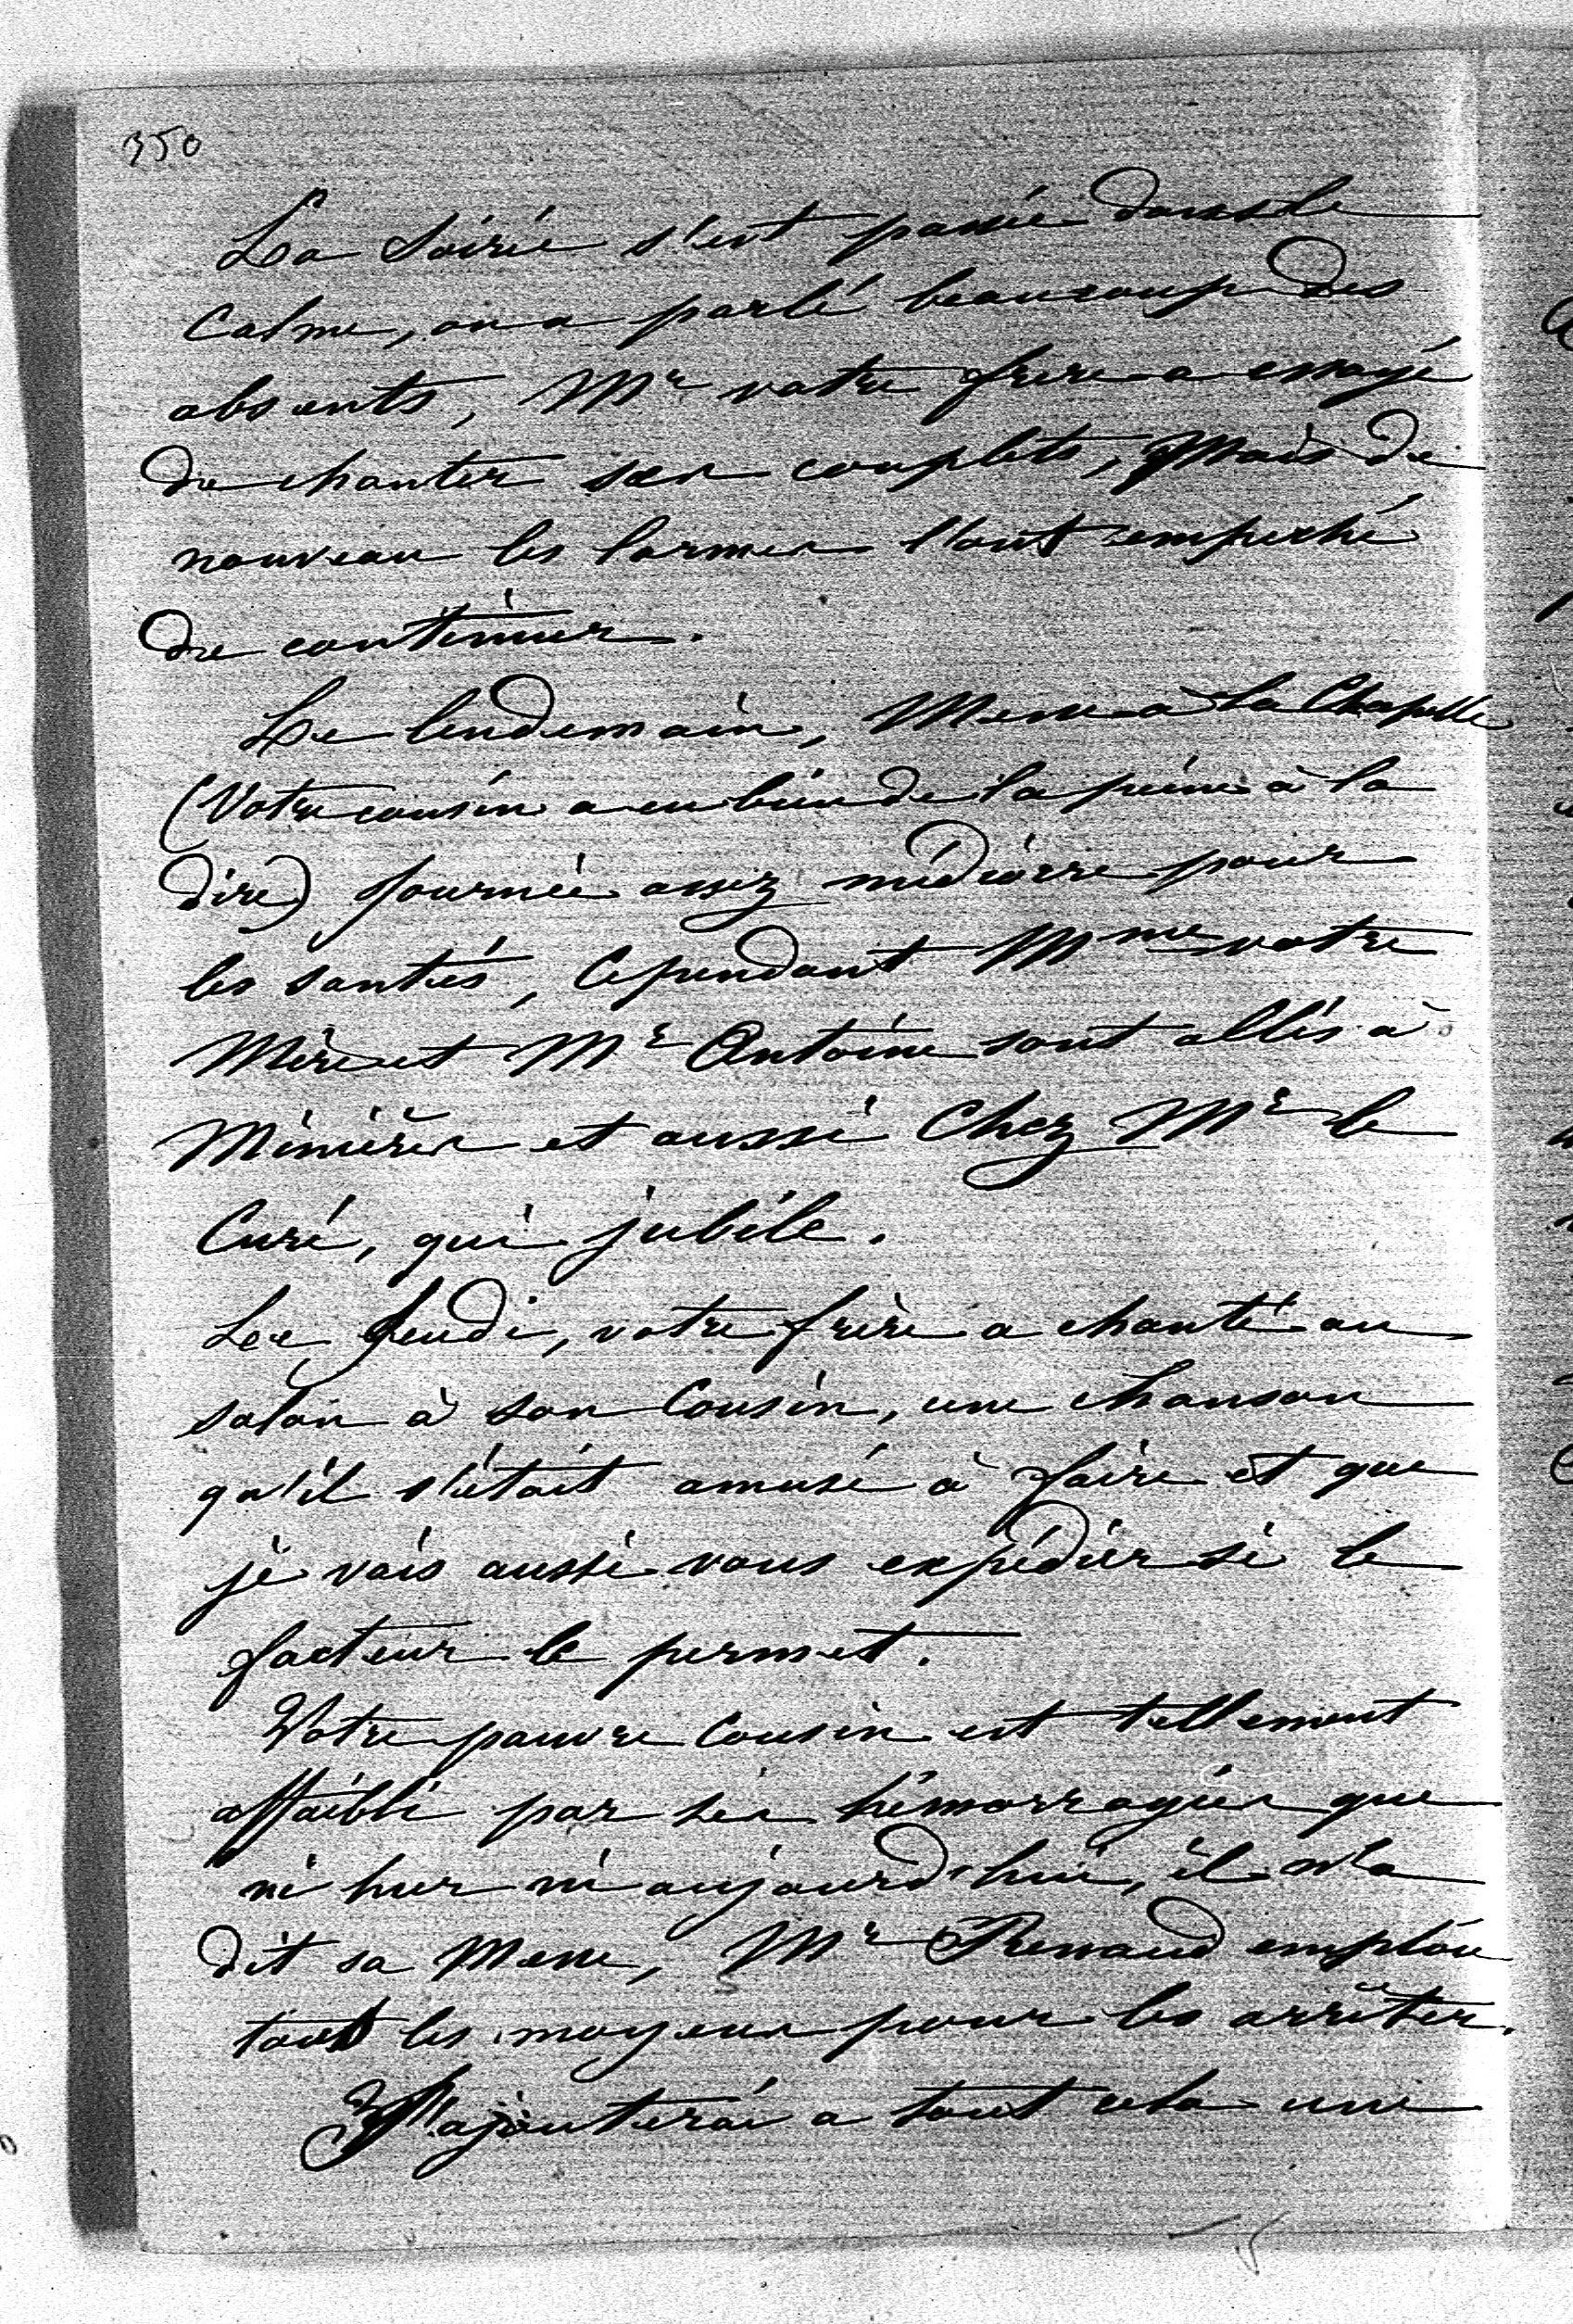 350
La soirée s'est passée dans le
calme, on a parlé beaucoup des
absents, Mr votre frère a essayé
de chanter ses couplets, Mais de
nouveau les larmes l'ont empeché
de continuer.
Le lendemain, Messe à la Chapelle
(Votre cousin a eu bien de la peine à la
dire) Journée assez médiocre pour
les santés, Cependant Mme votre
Mère et Mr Antoine sont allés à
Minières et aussi Chez Mr le
Curé, qui jubile.
Le Jeudi, votre frère a chanté au
salon à son Cousin, une chanson
qu'il s'était amusé à faire et que
je vais aussi vous expédier si le
facteur le permet.
Votre pauvre Cousin est tellement
affaibli par ses hémorragies que
ni hier ni aujourd'hui, il n'a
dit sa Messe, Mr Renaud emploie
tout les moyens pour les arrêter.
J'ajouterai a tout cela une